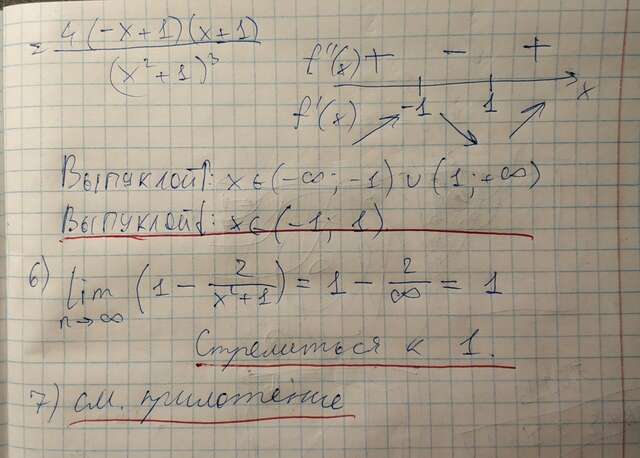 = 4(-x+1)(x+1) / (x²+1)³
f''(x) + - +
-1 1 x
f'(x)
Выпуклой: x ∈ (-∞; -1) ∪ (1; +∞)
Выпуклой: x ∈ (-1; 1)
6) lim n→∞ (1 - 2/(x²+1)) = 1 - 2/∞ = 1
Стремиться к 1.
7) см. приложение